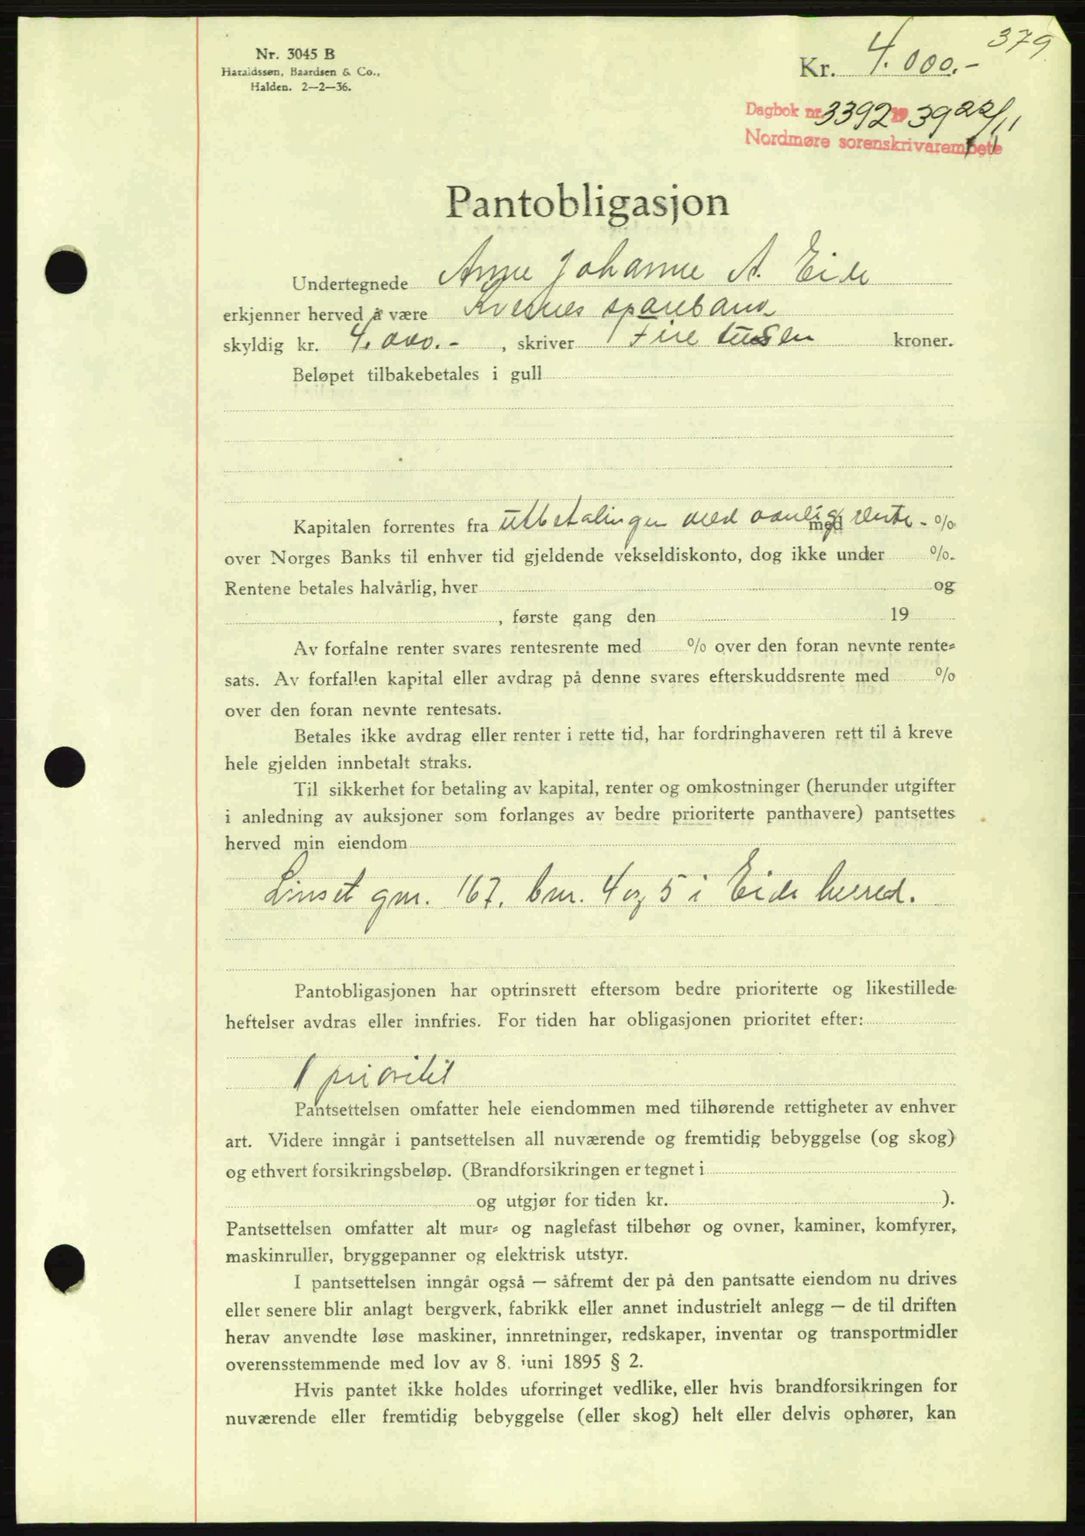 379
Nr. 3045 B
Haraldssøn, Baardsen & Co.,
Halden. 2—2—36.
Kr. 4.000.-
Dagbok nr. 3392 19 39 22/11
Nordmøre sorenskrivarembete
Pantobligasjon
Undertegnede Anne Johanne A. Eide
erkjenner herved å være Kvernes sparebank
skyldig kr. 4.000.- , skriver Fire tusen kroner.
Beløpet tilbakebetales i gull
Kapitalen forrentes fra utbetalingen med vanlig med rente - %
over Norges Banks til enhver tid gjeldende vekseldiskonto, dog ikke under %.
Rentene betales halvårlig, hver og
, første gang den 19
Av forfalne renter svares rentesrente med % over den foran nevnte rente-
sats. Av forfallen kapital eller avdrag på denne svares efterskuddsrente med %
over den foran nevnte rentesats.
Betales ikke avdrag eller renter i rette tid, har fordringhaveren rett til å kreve
hele gjelden innbetalt straks.
Til sikkerhet for betaling av kapital, renter og omkostninger (herunder utgifter
i anledning av auksjoner som forlanges av bedre prioriterte panthavere) pantsettes
herved min eiendom
Linset gnr. 167, bnr. 4 og 5 i Eide herred.
Pantobligasjonen har optrinsrett eftersom bedre prioriterte og likestillede
heftelser avdras eller innfries. For tiden har obligasjonen prioritet efter:
1 prioritet
Pantsettelsen omfatter hele eiendommen med tilhørende rettigheter av enhver
art. Videre inngår i pantsettelsen all nuværende og fremtidig bebyggelse (og skog)
og ethvert forsikringsbeløp. (Brandforsikringen er tegnet i
og utgjør for tiden kr. ).
Pantsettelsen omfatter alt mur- og naglefast tilbehør og ovner, kaminer, komfyrer,
maskinruller, bryggepanner og elektrisk utstyr.
I pantsettelsen inngår også — såfremt der på den pantsatte eiendom nu drives
eller senere blir anlagt bergverk, fabrikk eller annet industrielt anlegg — de til driften
herav anvendte løse maskiner, innretninger, redskaper, inventar og transportmidler
overensstemmende med lov av 8. juni 1895 § 2.
Hvis pantet ikke holdes uforringet vedlike, eller hvis brandforsikringen for
nuværende eller fremtidig bebyggelse (eller skog) helt eller delvis ophører, kan